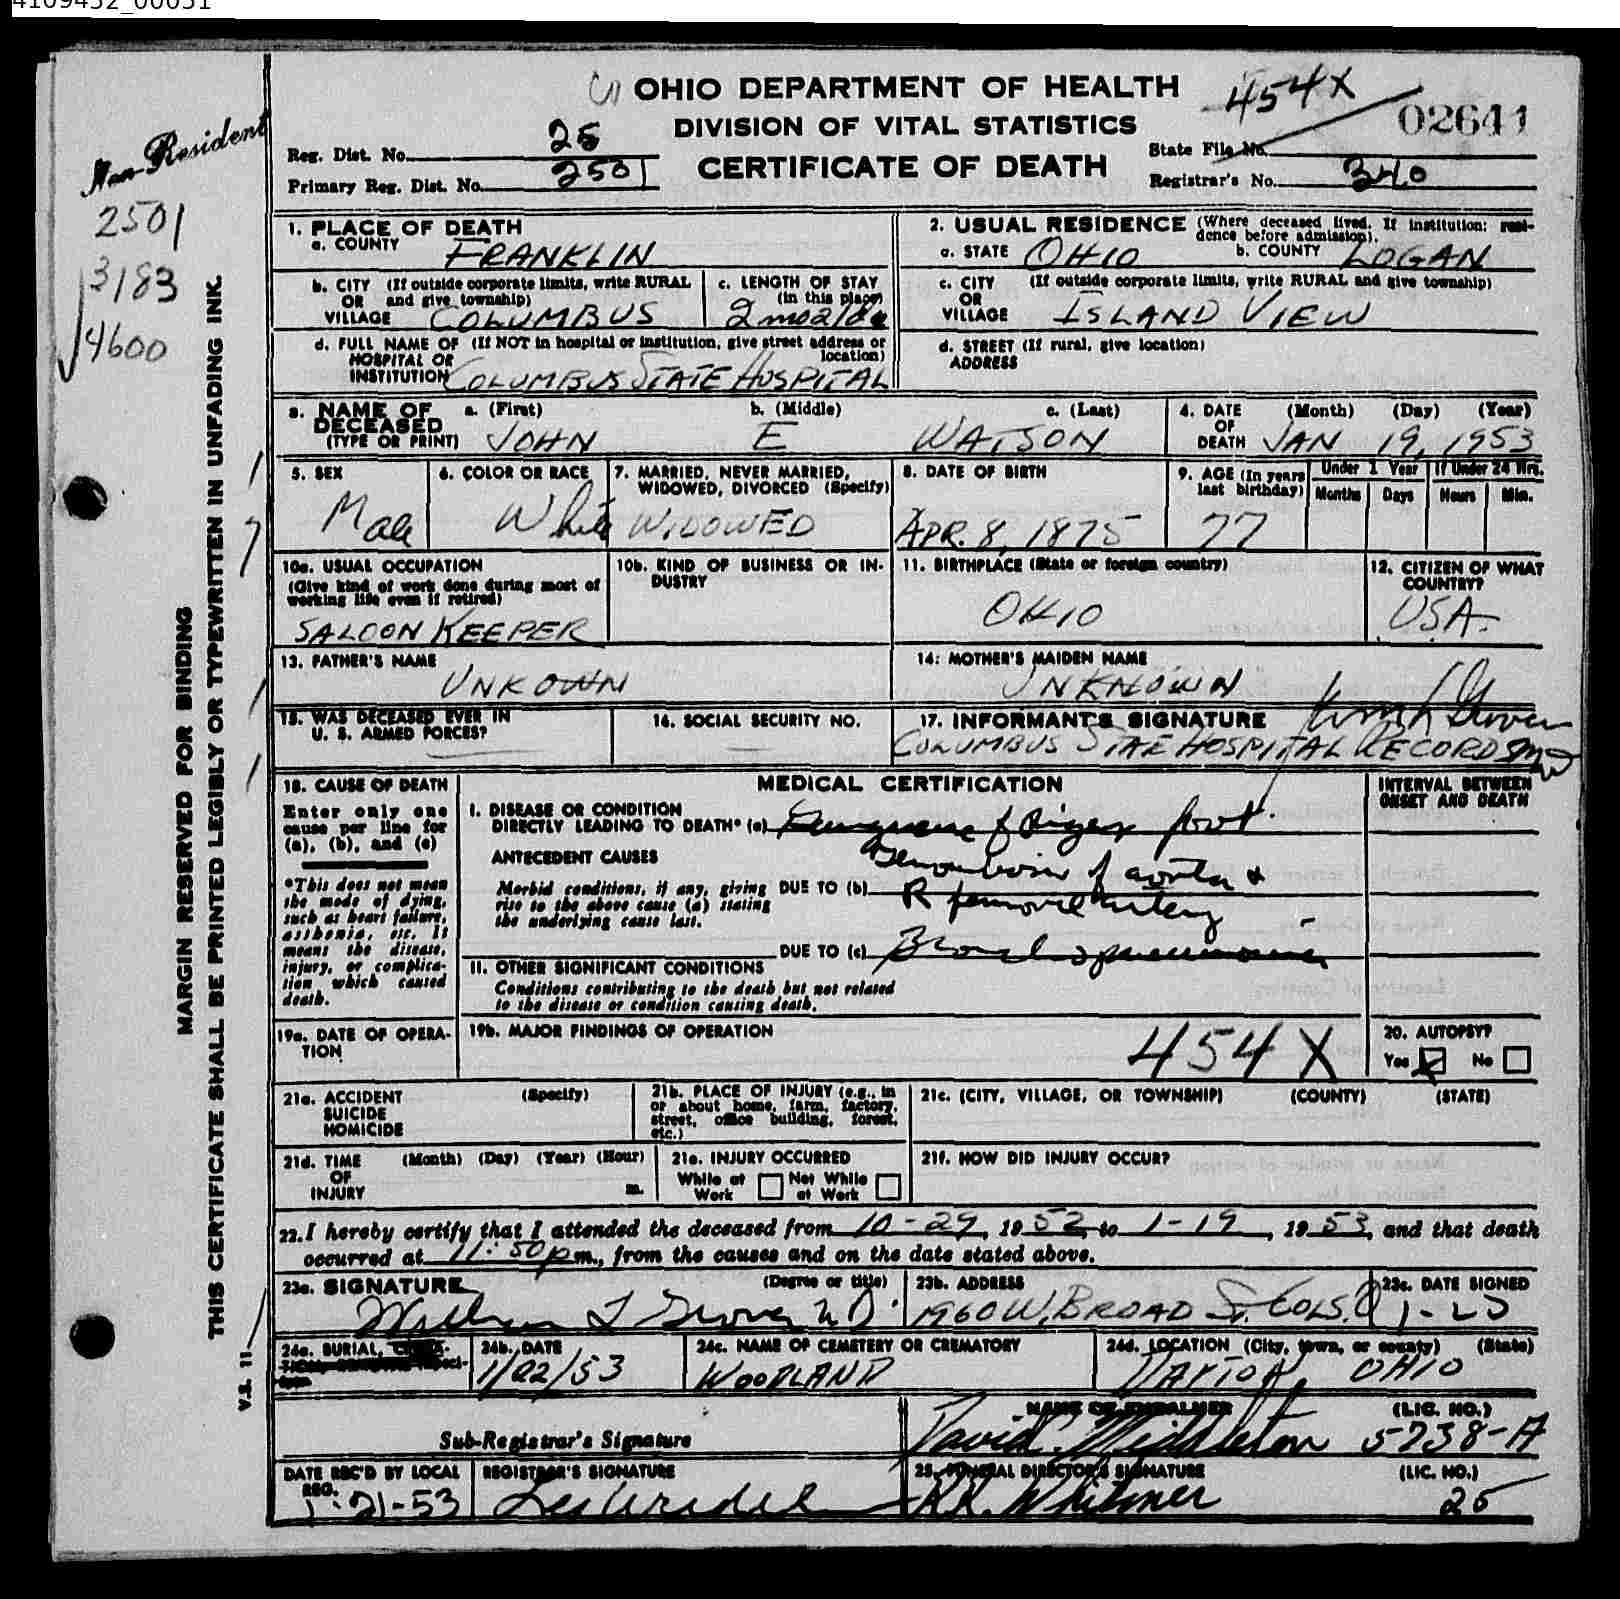 4109452_00031
OHIO DEPARTMENT OF HEALTH
DIVISION OF VITAL STATISTICS
CERTIFICATE OF DEATH
454X
02641
Reg. Dist. No. 25
Primary Reg. Dist. No. 2501
State File No.
Registrar's No. 340
Non-Resident
2501
3183
4600
MARGIN RESERVED FOR BINDING
THIS CERTIFICATE SHALL BE PRINTED LEGIBLY OR TYPEWRITTEN IN UNFADING INK.
V.S. 11
1. PLACE OF DEATH
a. COUNTY FRANKLIN
b. CITY (If outside corporate limits, write RURAL
OR and give township)
VILLAGE COLUMBUS
c. LENGTH OF STAY
(in this place)
2 mo 21 da
d. FULL NAME OF (If NOT in hospital or institution, give street address or
HOSPITAL OR location)
INSTITUTION COLUMBUS STATE HOSPITAL
2. USUAL RESIDENCE (Where deceased lived. If institution: resi-
dence before admission).
a. STATE OHIO b. COUNTY LOGAN
c. CITY (If outside corporate limits, write RURAL and give township)
OR
VILLAGE ISLAND VIEW
d. STREET (If rural, give location)
ADDRESS
3. NAME OF a. (First) b. (Middle) c. (Last)
DECEASED
(TYPE OR PRINT) JOHN E WATSON
4. DATE (Month) (Day) (Year)
OF
DEATH JAN 19, 1953
5. SEX
Male
6. COLOR OR RACE
White
7. MARRIED, NEVER MARRIED,
WIDOWED, DIVORCED (Specify)
WIDOWED
8. DATE OF BIRTH
APR. 8, 1875
9. AGE (In years
last birthday)
77
Under 1 Year
Months Days
If Under 24 Hrs.
Hours Min.
10a. USUAL OCCUPATION
(Give kind of work done during most of
working life even if retired)
SALOON KEEPER
10b. KIND OF BUSINESS OR IN-
DUSTRY
11. BIRTHPLACE (State or foreign country)
OHIO
12. CITIZEN OF WHAT
COUNTRY?
USA.
13. FATHER'S NAME
UNKOWN
14. MOTHER'S MAIDEN NAME
UNKNOWN
15. WAS DECEASED EVER IN
U. S. ARMED FORCES?
16. SOCIAL SECURITY NO.
17. INFORMANT'S SIGNATURE Wm L Grover
COLUMBUS STATE HOSPITAL RECORDS
18. CAUSE OF DEATH
Enter only one
cause per line for
(a), (b), and (c)
*This does not mean
the mode of dying,
such as heart failure,
asthenia, etc. It
means the disease,
injury, or complica-
tion which caused
death.
MEDICAL CERTIFICATION
INTERVAL BETWEEN
ONSET AND DEATH
I. DISEASE OR CONDITION
DIRECTLY LEADING TO DEATH* (a) Gangrene of Right foot.
ANTECEDENT CAUSES
Thrombosis of aorta &
Morbid conditions, if any, giving DUE TO (b)
rise to the above cause (a) stating R femoral artery
the underlying cause last.
DUE TO (c) Bronchopneumonia
II. OTHER SIGNIFICANT CONDITIONS
Conditions contributing to the death but not related
to the disease or condition causing death.
19a. DATE OF OPERA-
TION
19b. MAJOR FINDINGS OF OPERATION
454X
20. AUTOPSY?
Yes No
21a. ACCIDENT (Specify)
SUICIDE
HOMICIDE
21b. PLACE OF INJURY (e.g., in
or about home, farm, factory,
street, office building, forest,
etc.)
21c. (CITY, VILLAGE, OR TOWNSHIP) (COUNTY) (STATE)
21d. TIME (Month) (Day) (Year) (Hour)
OF
INJURY m.
21e. INJURY OCCURRED
While at Not While
Work at Work
21f. HOW DID INJURY OCCUR?
22. I hereby certify that I attended the deceased from 10-29, 1952, to 1-19, 1953, and that death
occurred at 11:50 p m., from the causes and on the date stated above.
23a. SIGNATURE (Degree or title)
William L Grover M.D.
23b. ADDRESS
1960 W. BROAD St. COLS. O
23c. DATE SIGNED
24a. BURIAL,
24b. DATE
1/22/53
24c. NAME OF CEMETERY OR CREMATORY
WOODLAND
24d. LOCATION (City, town, or county) (State)
DAYTON, OHIO
Sub-Registrar's Signature
NAME OF EMBALMER (LIC. NO.)
David C. Middleton 5738-A
DATE REC'D BY LOCAL
REG.
1-21-53
REGISTRAR'S SIGNATURE
25. FUNERAL DIRECTOR'S SIGNATURE (LIC. NO.)
Whitmer 25